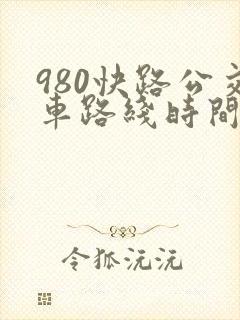 980快路公交
車路綫時間
令狐沅沅